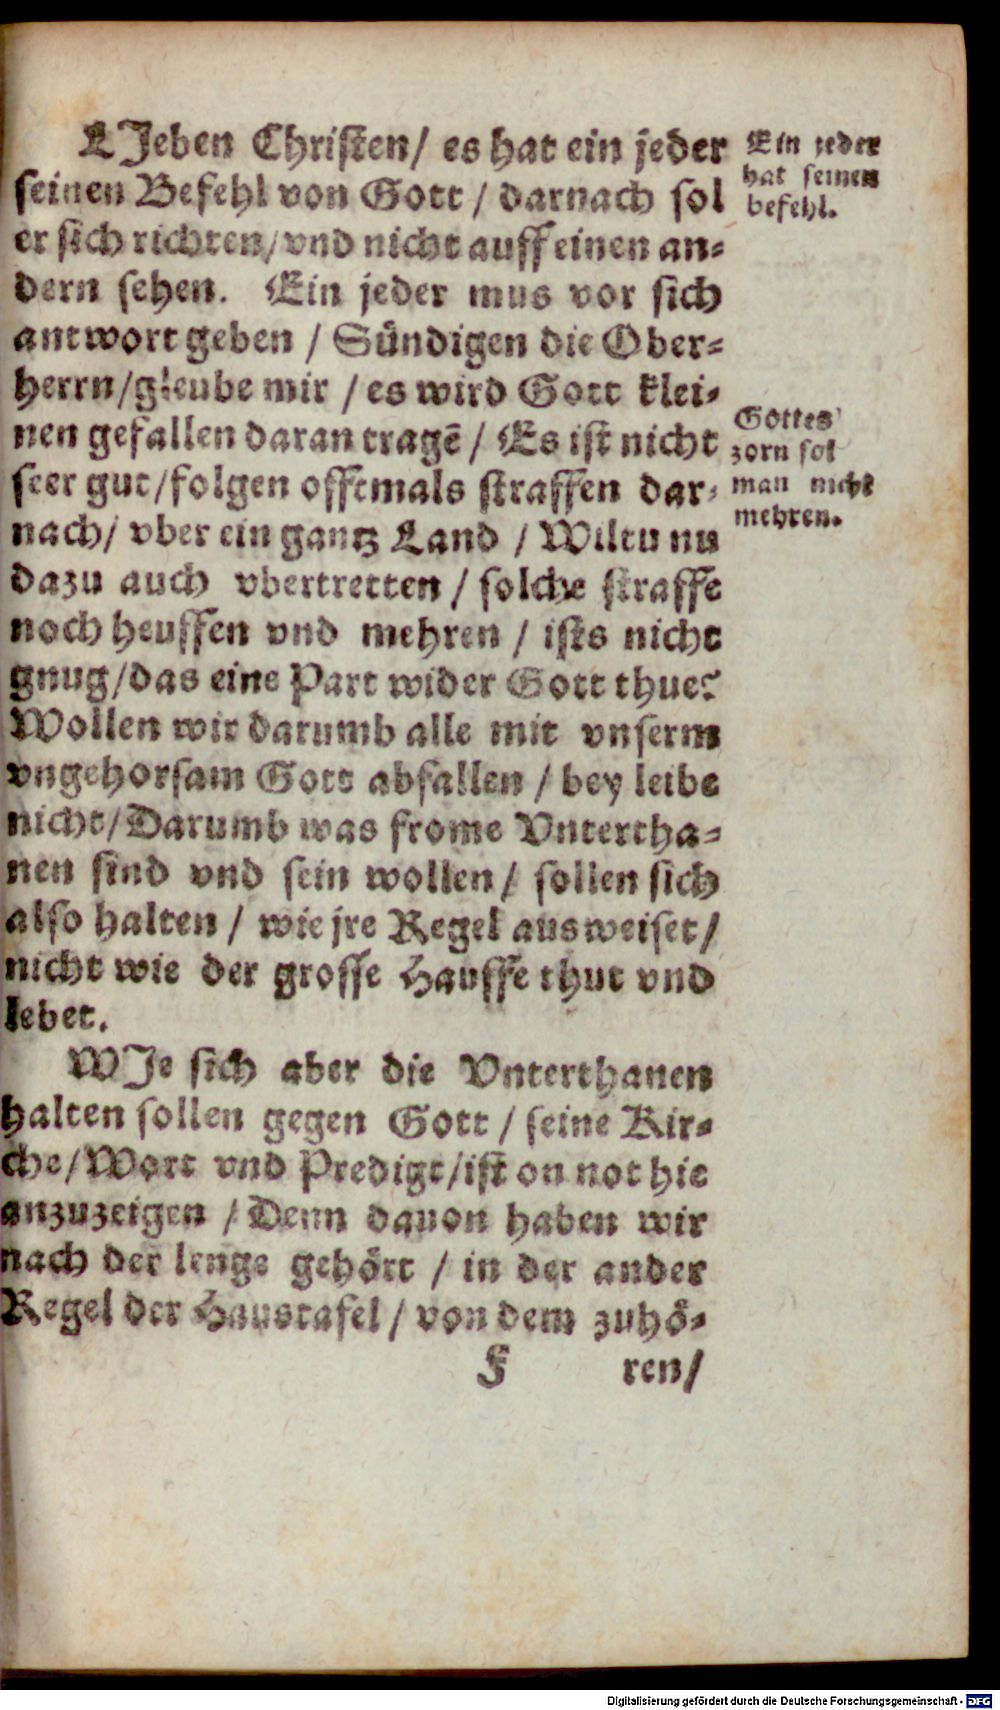 LJeben Christen/ es hat ein jeder
seinen Befehl von Gott / darnach sol
er sich richten/ vnd nicht auff einen an-
dern sehen. Ein jeder mus vor sich
antwort geben / Sündigen die Ober-
herrn/gleube mir / es wird Gott klei-
nen gefallen daran tragē / Es ist nicht
seer gut/folgen offtmals straffen dar-
nach/ vber ein gantz Land / Wiltu nu
dazu auch vbertretten / solche straffe
noch heuffen vnd mehren / ists nicht
gnug/das eine Part wider Gott thue?
Wollen wir darumb alle mit vnserm
vngehorsam Gott abfallen / bey leibe
nicht/Darumb was frome Vntertha-
nen sind vnd sein wollen/ sollen sich
also halten / wie jre Regel ausweiset/
nicht wie der grosse Hauffe thut vnd
lebet.
WJe sich aber die Vnterthanen
halten sollen gegen Gott / seine Kir-
che/Wort vnd Predigt/ist on not hie
anzuzeigen / Denn dauon haben wir
nach der lenge gehört / in der ander
Regel der Haustafel / von dem zuhö-
F ren/
Ein jeder
hat seinen
befehl.
Gottes
zorn sol
man nicht
mehren.
Digitalisierung gefördert durch die Deutsche Forschungsgemeinschaft - DFG